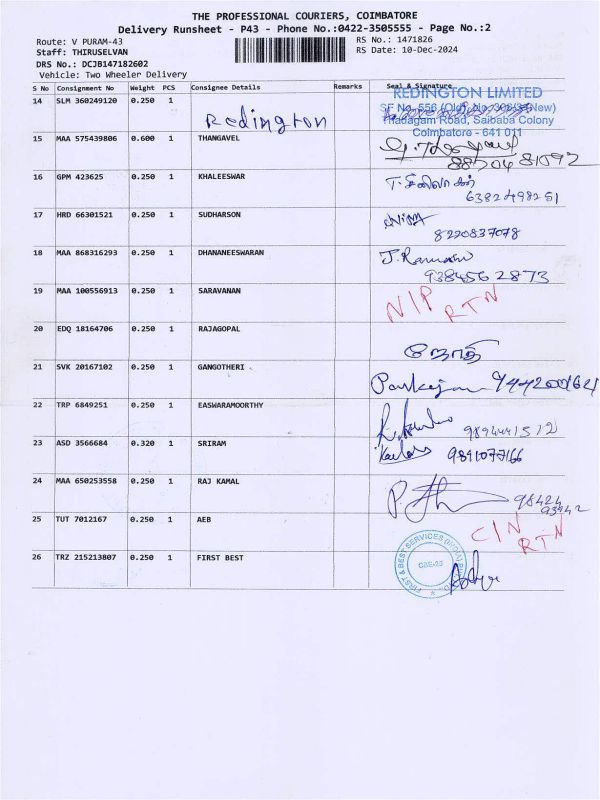 THE PROFESSIONAL COURIERS, COIMBATORE
Delivery Runsheet - P43 - Phone No.:0422-3505555 - Page No.:2
Route: V PURAM-43
RS No.: 1471826
Staff: THIRUSELVAN
RS Date: 10-Dec-2024
DRS No.: DCJB147182602
Vehicle: Two Wheeler Delivery
S No Consignment No Weight PCS Consignee Details Remarks Seal & Signature
14 SLM 360249120 0.250 1 Redington
REDINGTON LIMITED
SF No. 556 (Old) No.
Thadagam Road, Saibaba Colony
Coimbatore - 641 011
15 MAA 575439806 0.600 1 THANGAVEL
16 GPM 423625 0.250 1 KHALEESWAR
6382498251
17 HRD 66301521 0.250 1 SUDHARSON
8220837078
18 MAA 868316293 0.250 1 DHANANEESWARAN
9384562873
19 MAA 100556913 0.250 1 SARAVANAN NIP RTN
20 EDQ 18164706 0.250 1 RAJAGOPAL ஜோதி
21 SVK 20167102 0.250 1 GANGOTHERI
22 TRP 6849251 0.250 1 EASWARAMOORTHY
9894441512
23 ASD 3566684 0.320 1 SRIRAM
9891077166
24 MAA 650253558 0.250 1 RAJ KAMAL
98424
93942
25 TUT 7012167 0.250 1 AEB CIN RTN
26 TRZ 215213807 0.250 1 FIRST BEST
FIRST & BEST SERVICES (INDIA)
CBE-25